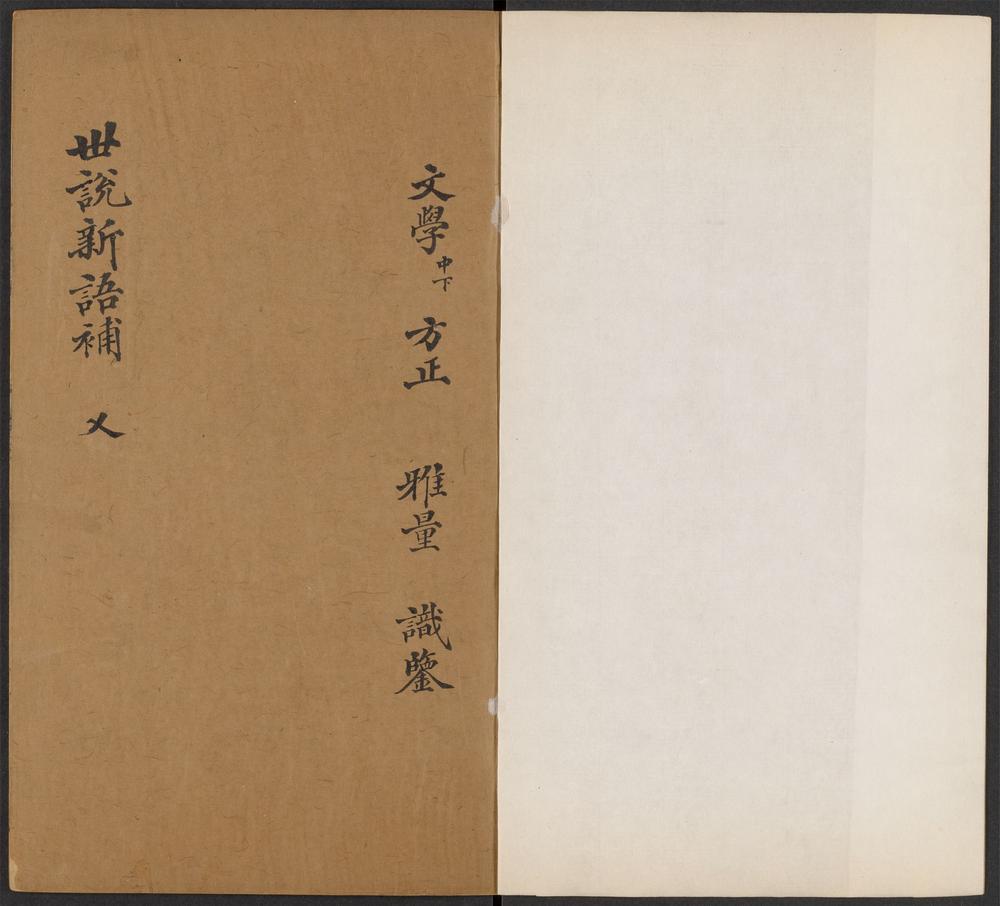 文學中下 方正 雅量 識鑒
世說新語補 㐅